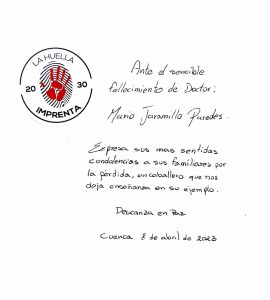 LA HUELLA
20 30
IMPRENTA
Ante el sensible
fallecimiento de Doctor:
Mario Jaramillo Paredes.
Expresa sus mas sentidas
condolencias a sus familiares por
la pérdida, un caballero que nos
deja enseñanza en su ejemplo.
Descanza en Paz
Cuenca 8 de abril de 2023